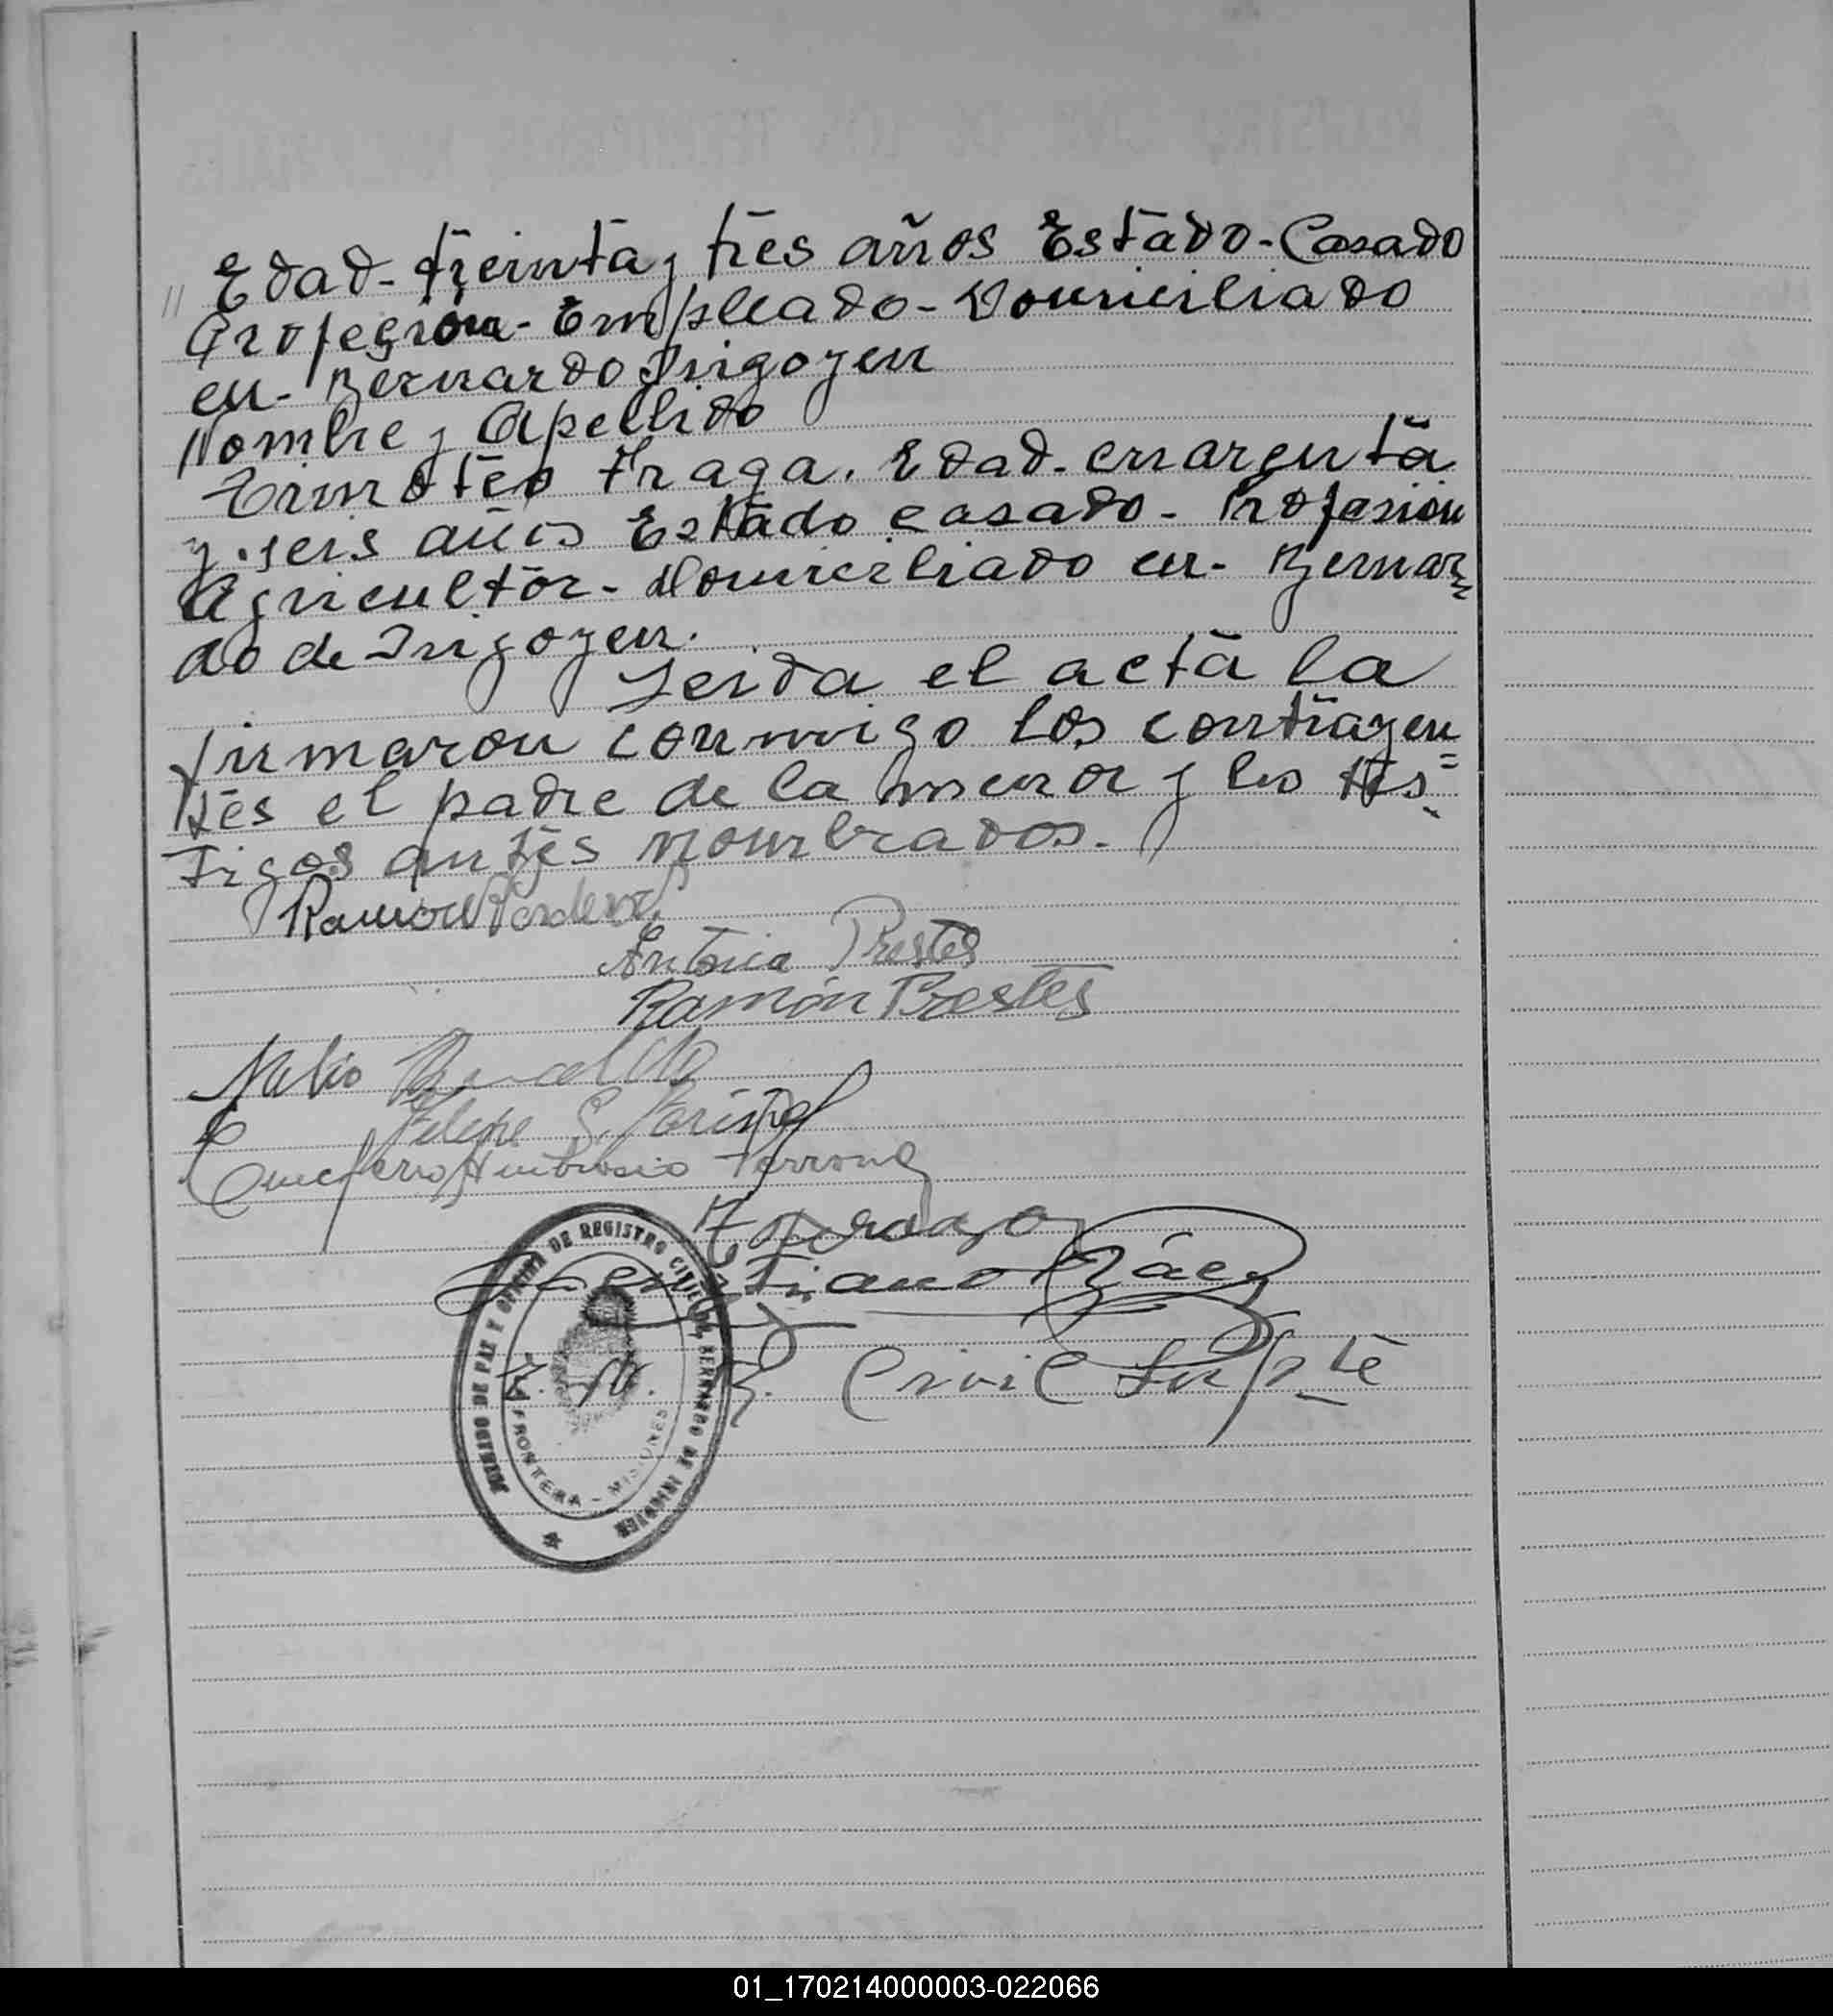 " Edad- treinta y tres años Estado- Casado
Profesion- Empleado- Domiciliado
en- Bernardo Irigoyen
Nombre y Apellido
Timoteo Fraga. Edad- cuarenta
y seis años Estado casado- Profesion
Agricultor- Domiciliado en- Bernar
do de Irigoyen.
Leida el acta la
firmaron conmigo los contrayen=
tes el padre de la menor y los tes-
tigos antes nombrados.
Ramon
Antonia Prestes
Ramón Prestes
Felipe S.
Ambrosio
Báez
J. N. R. Civil Supte
JUZGADO DE PAZ Y OFICINA DE REGISTRO CIVIL DE BERNARDO DE IRIGOYEN
FRONTERA - MISIONES
01_170214000003-022066